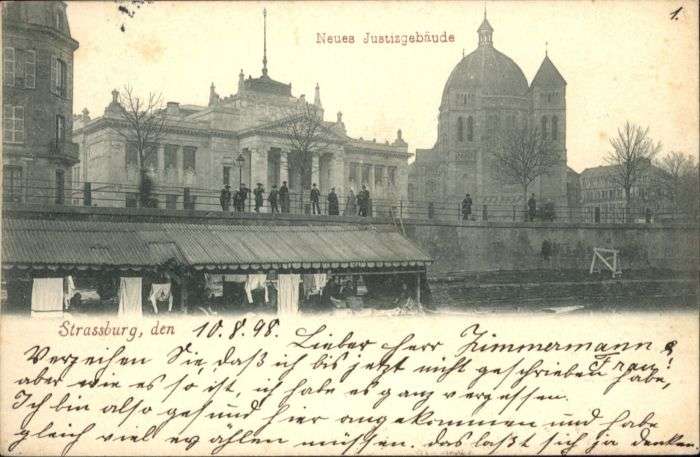 Neues Justizgebäude
1.
Strassburg, den 10.8.98. Lieber Herr Zimmermann &
Frau!
Verzeihen Sie, daß ich bis jetzt nicht geschrieben habe,
aber wie es so ist, ich habe es ganz vergessen.
Ich bin also gesund hier angekommen und habe
gleich viel erzählen müssen. das laßt sich ja denken.